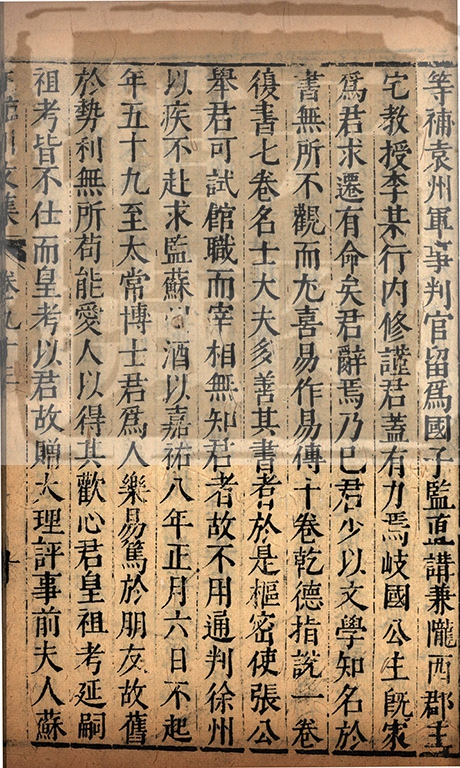 等補袁州軍事判官留爲國子監直講兼隴西郡主
宅教授李某行內修謹君蓋有力焉岐國公主旣家
爲君求遷有命矣君辭焉乃已君少以文學知名於
書無所不觀而尢喜易作易傳十卷乾德指說一卷
復書七卷名士大夫多善其書者於是樞密使張公
舉君可試館職而宰相無知君者故不用通判徐州
以疾不赴求監蘇州酒以嘉祐八年正月六日不起
年五十九至太常博士君爲人樂易篤於朋友故舊
於勢利無所苟能愛人以得其歡心君皇祖考延嗣
祖考皆不仕而皇考以君故贈大理評事前夫人蘇
川文集 卷九十三